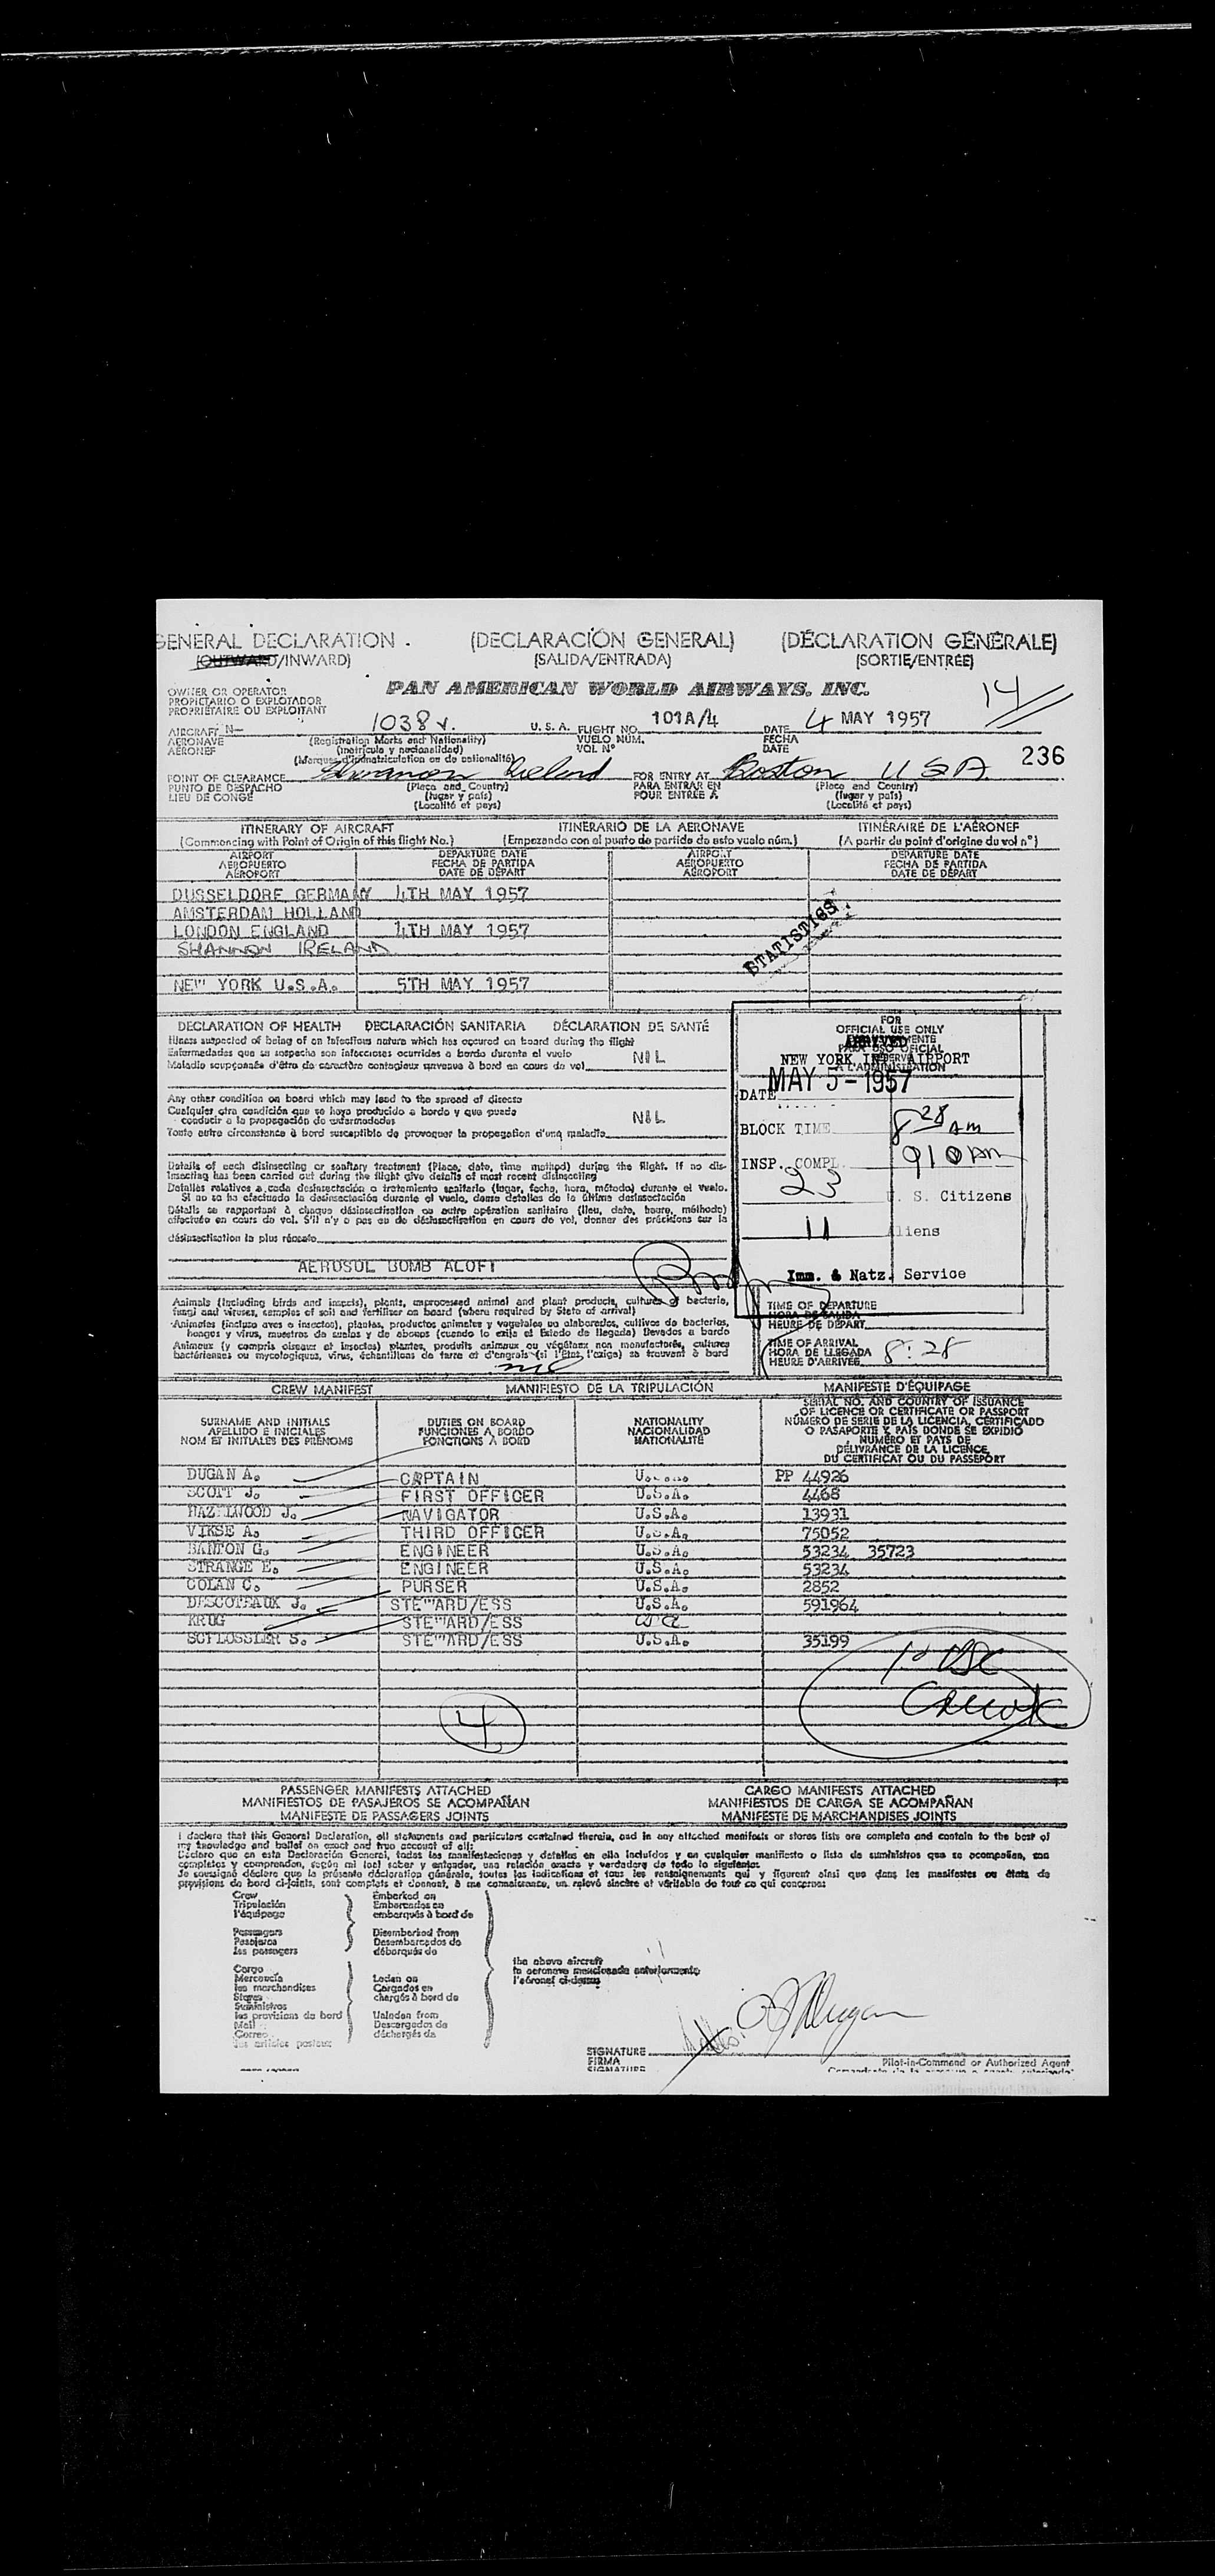 GENERAL DECLARATION . (DECLARACIÓN GENERAL) (DÉCLARATION GÉNÉRALE)
(OUTWARD/INWARD) (SALIDA/ENTRADA) (SORTIE/ENTRÉE)
OWNER OR OPERATOR
PROPIETARIO O EXPLOTADOR
PROPRIÉTAIRE OU EXPLOITANT
PAN AMERICAN WORLD AIRWAYS, INC.
14
AIRCRAFT N— 1038 V. U. S. A. FLIGHT NO. 101A/4 DATE 4 MAY 1957
AERONAVE (Registration Marks and Nationality) VUELO NÚM. FECHA
AÉRONEF (matrícula y nacionalidad) VOL Nº DATE
(Marques d'immatriculation ou de nationalité)
236
POINT OF CLEARANCE Shannon Ireland FOR ENTRY AT Boston USA
PUNTO DE DESPACHO (Place and Country) PARA ENTRAR EN (Place and Country)
LIEU DE CONGÉ (lugar y país) POUR ENTRÉE À (lugar y país)
(Localité et pays) (Localité et pays)
ITINERARY OF AIRCRAFT ITINERARIO DE LA AERONAVE ITINÉRAIRE DE L'AÉRONEF
(Commencing with Point of Origin of this flight No.) (Empezando con el punto de partida de esto vuelo núm.) (A partir du point d'origine du vol n°)
AIRPORT DEPARTURE DATE AIRPORT DEPARTURE DATE
AEROPUERTO FECHA DE PARTIDA AEROPUERTO FECHA DE PARTIDA
AÉROPORT DATE DE DÉPART AÉROPORT DATE DE DÉPART
DUSSELDORF GERMANY 4TH MAY 1957
AMSTERDAM HOLLAND
LONDON ENGLAND 4TH MAY 1957
SHANNON IRELAND
STATISTICS
NEW YORK U.S.A. 5TH MAY 1957
DECLARATION OF HEALTH DECLARACIÓN SANITARIA DÉCLARATION DE SANTÉ
Illness suspected of being of an infectious nature which has occured on board during the flight
Enfermedades que se sospecha son infecciosas ocurridas a bordo durante el vuelo
Maladie soupçonnée d'être de caractère contagieux survenue à bord en cours de vol NIL
Any other condition on board which may lead to the spread of disease
Cualquier otra condición que se haya producido a bordo y que pueda
conducir a la propagación de enfermedades NIL
Toute autre circonstance à bord susceptible de provoquer la propagation d'une maladie
Details of each disinsecting or sanitary treatment (Place, date, time method) during the flight. If no dis-
insecting has been carried out during the flight give details of most recent disinsecting
Detalles relativos a cada desinsectación o tratamiento sanitario (lugar, fecha, hora, método) durante el vuelo.
Si no se ha efectuado la desinsectación durante el vuelo, dense detalles de la última desinsectación
Détails se rapportant à chaque désinsectisation ou autre opération sanitaire (lieu, date, heure, méthode)
effectuée en cours de vol. S'il n'y a pas eu de désinsectisation en cours de vol, donner des précisions sur la
désinsectisation la plus récente
AEROSOL BOMB ALOFT
FOR
OFFICIAL USE ONLY
NEW YORK INT. AIRPORT
DATE MAY 5 - 1957
BLOCK TIME 8 28 AM
INSP. COMPL. 910 AM
23 U. S. Citizens
11 Aliens
Imm. & Natz. Service
Animals (including birds and insects), plants, unprocessed animal and plant products, cultures of bacteria,
fungi and viruses, samples of soil and fertiliser on board (where required by State of arrival)
Animales (incluso aves e insectos), plantas, productos animales y vegetales no elaborados, cultivos de bacterias,
hongos y virus, muestras de suelos y de abonos (cuando lo exija el Estado de llegada) llevados a bordo
Animaux (y compris oiseaux et insectes) plantes, produits animaux ou végétaux non manufacturés, cultures
bactériennes ou mycologiques, virus, échantillons de terre et d'engrais (si l'État l'exige) se trouvant à bord
nil
TIME OF DEPARTURE
HORA DE SALIDA
HEURE DE DÉPART
TIME OF ARRIVAL
HORA DE LLEGADA 8:28
HEURE D'ARRIVÉE
CREW MANIFEST MANIFIESTO DE LA TRIPULACIÓN MANIFESTE D'ÉQUIPAGE
SURNAME AND INITIALS
APELLIDO E INICIALES
NOM ET INITIALES DES PRÉNOMS
DUTIES ON BOARD
FUNCIONES A BORDO
FONCTIONS À BORD
NATIONALITY
NACIONALIDAD
NATIONALITÉ
SERIAL NO. AND COUNTRY OF ISSUANCE
OF LICENCE OR CERTIFICATE OR PASSPORT
NÚMERO DE SERIE DE LA LICENCIA, CERTIFICADO
O PASAPORTE Y PAÍS DONDE SE EXPIDIÓ
NUMÉRO ET PAYS DE
DÉLIVRANCE DE LA LICENCE
DU CERTIFICAT OU DU PASSEPORT
DUGAN A. CAPTAIN U.S.A. PP 44926
SCOTT J. FIRST OFFICER U.S.A. 4468
HAZELWOOD J. NAVIGATOR U.S.A. 13931
VIKSE A. THIRD OFFICER U.S.A. 75052
BANTON G. ENGINEER U.S.A. 53234 35723
STRANGE E. ENGINEER U.S.A. 53234
COLAN C. PURSER U.S.A. 2852
DESCOTEAUX J. STEWARD/ESS U.S.A. 591964
KRUG STEWARD/ESS
SCHLOSSLER S. STEWARD/ESS U.S.A. 35199
10 USC
Crew
4
PASSENGER MANIFESTS ATTACHED CARGO MANIFESTS ATTACHED
MANIFIESTOS DE PASAJEROS SE ACOMPAÑAN MANIFIESTOS DE CARGA SE ACOMPAÑAN
MANIFESTE DE PASSAGERS JOINTS MANIFESTE DE MARCHANDISES JOINTS
I declare that this General Declaration, all statements and particulars contained therein, and in any attached manifests or stores lists are complete and contain to the best of
my knowledge and belief an exact and true account of all:
Declaro que en esta Declaración General, todas las manifestaciones y detalles en ella incluidos y en cualquier manifiesto o lista de suministros que se acompañan, son
completos y comprenden, según mi leal saber y entender, una relación exacta y verdadera de todo lo siguiente:
Je soussigné déclare que la présente déclaration générale, toutes les indications et tous les renseignements qui y figurent ainsi que dans les manifestes ou états de
provisions de bord ci-joints, sont complets et donnent, à ma connaissance, un relevé sincère et véritable de tout ce qui concerne:
Crew Embarked on
Tripulación Embarcados en
l'équipage embarqués à bord de
Passengers Disembarked from
Pasajeros Desembarcados de
les passagers débarqués de
the above aircraft
la aeronave mencionada anteriormente
l'aéronef ci-dessus
Cargo
Mercancía Laden on
les marchandises Cargados en
Stores chargés à bord de
Suministros
les provisions de bord Unladen from
Mail Descargados de
Correo déchargés de
les articles postaux
SIGNATURE
FIRMA
SIGNATURE
Pilot-in-Command or Authorized Agent